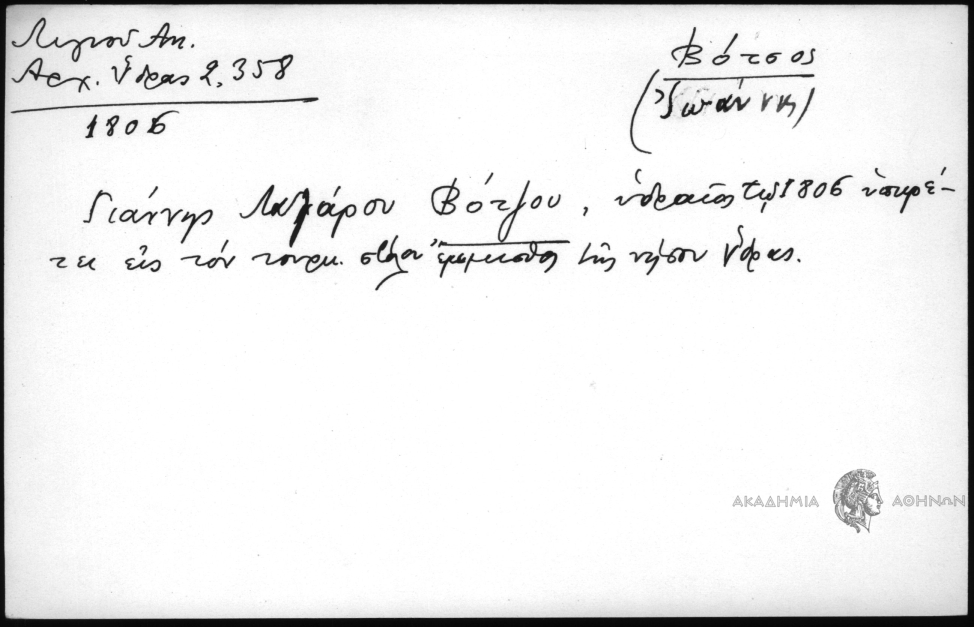 Λιγνού Αν.
Αρχ. Ὕδρας 2, 358
1806
Βότσος
(Ἰωάννης)
Γιάννης Λαζάρου Βότζου, ὑδραῖος τῷ 1806 ὑπηρέ-
τει εἰς τόν τουρκ. στόλον τῆς νήσου Ὕδρας.
ΑΚΑΔΗΜΙΑ ΑΘΗΝΩΝ